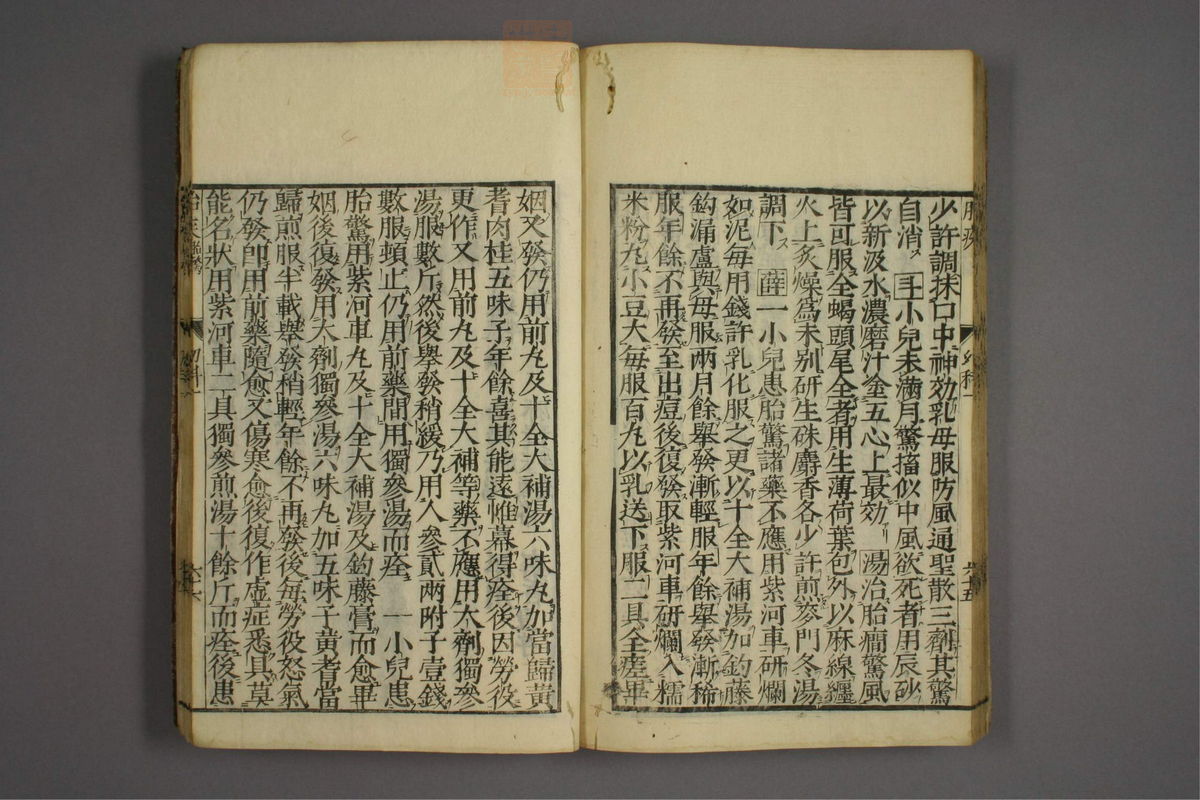 少許調抹口中神効乳母服防風通聖散三劑其驚
自消 王小兒未滿月驚搐似中風欲死者用辰砂
以新汲水濃磨汁塗五心上最効 湯治胎癇驚風
皆可服全蝎頭尾全者用生薄荷葉包外以麻線纏
火上炙燥為末別研生硃麝香各少許煎麥門冬湯
調下 薛一小兒患胎驚諸藥不應用紫河車研爛
如泥每用錢許乳化服之更以十全大補湯加鈎藤
鈎漏盧與母服兩月餘舉發漸輕服年餘舉發漸稀
服年餘不再發至出痘後復發取紫河車研爛入糯
米粉丸小豆大每服百丸以乳送下服二具全瘥畢
姻又發仍用前丸及十全大補湯六味丸加當歸黃
耆肉桂五味子年餘喜其能遠惟幕得痊後因勞役
更作又用前丸及十全大補等藥不應用大劑獨參
湯服數斤然後舉發稍緩乃用人參貳兩附子壹錢
數服頓止仍用前藥間用獨參湯而痊 一小兒患
胎驚用紫河車丸及十全大補湯及鈎藤膏而愈畢
姻後復發用大劑獨參湯六味丸加五味子黃耆當
歸煎服半載舉發稍輕年餘不再發後每勞役怒氣
仍發卽用前藥隨愈又傷寒愈後復作虛症悉具莫
能名狀用紫河車二具獨參煎湯十餘斤而痊後患